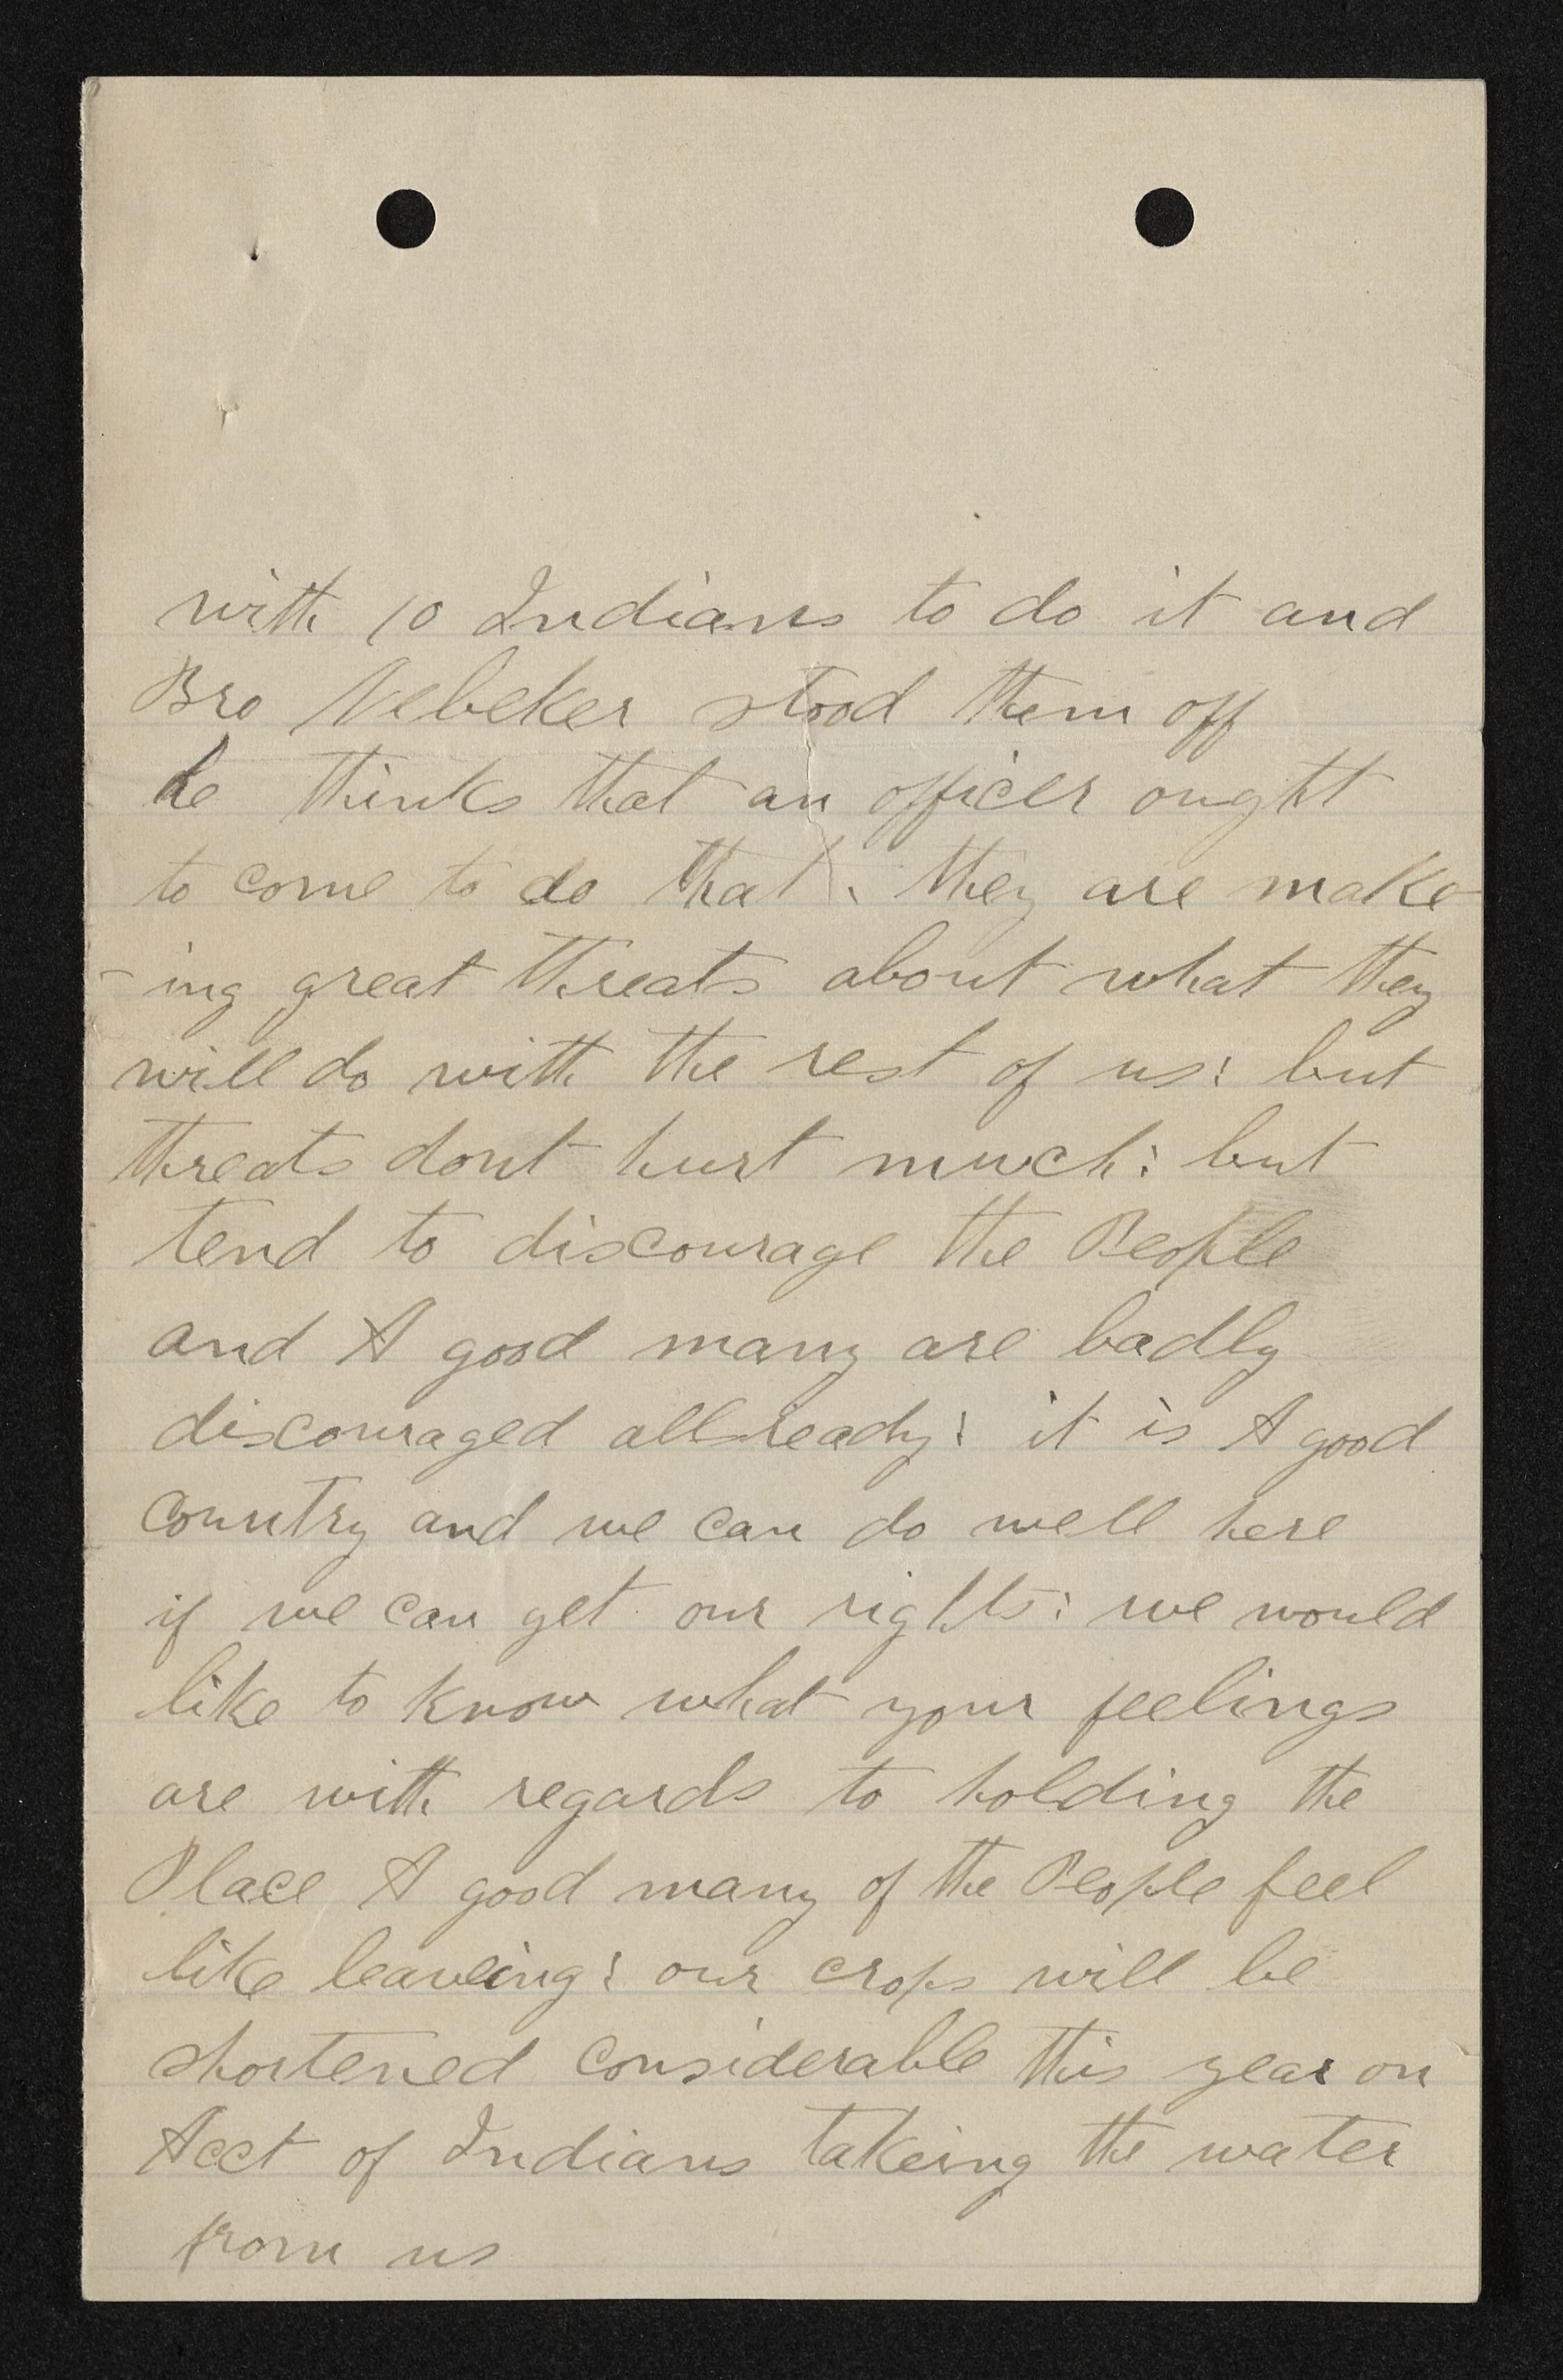 with 10 Indians to do it and
Bro Nebeker stood them off
he thinks that an officer ought
to come to do that. they are make
-ing great threats about what they
will do with the rest of us: but
threats dont hurt much: but
tend to discourage the People
and A good many are badly
discouraged allready: it is A good
country and we can do well here
if we can get our rights: we would
like to know what your feelings
are with regards to holding the
Place A good many of the People feel
like leaveing: our crops will be
shortened considerable this year on
Acct of Indians takeing the water
from us